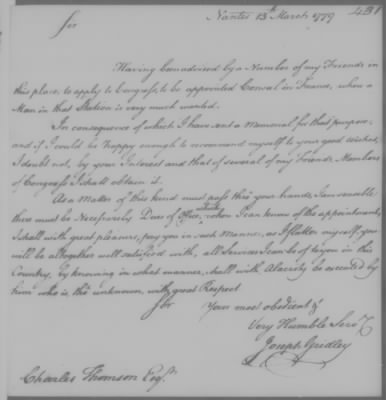 Nantes 13th March 1779
431
Sir
Having been advised by a Number of my Friends in
this place, to apply to Congress, to be appointed Consul in France, where a
Man in that Station is very much wanted.
In consequence of which I have sent a Memorial for that purpose,
and if I could be happy enough to recommend myself to your good wishes,
I doubt not, by your Interest and that of several of my Friends, Members
of Congress I shall obtain it.
As a Matter of this kind must pass thro' your hands, I am sensible
there must be Necessarily Dues of Office, when I can know of the appointment,
I shall with great pleasure, pay you in such Manner, as I flatter myself, you
will be altogether well satisfied with, all Services I can be of to you in this
Country, by knowing in what manner, shall with Alacrity be executed by
him who is, tho' unknown, with great Respect
Sir
Your most obedient &
Very Humble Serv
Joseph Gridley
Charles Thomson Esqr.